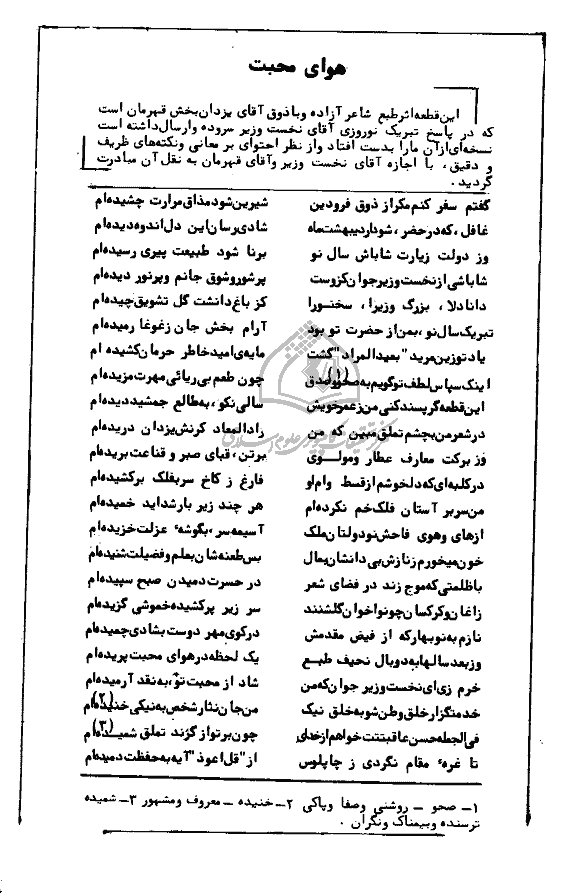 هوای محبت
این قطعه اثر طبع شاعر آزاده وباذوق آقای یزدان‌بخش قهرمان است
که در پاسخ تبریک نوروزی آقای نخست وزیر سروده وارسال‌داشته است
نسخه‌ای‌ازآن مارا بدست افتاد واز نظر احتوای بر معانی ونکته‌های ظریف
و دقیق ، با اجازه آقای نخست وزیر وآقای قهرمان به نقل آن مبادرت
گردید .
گفتم سفر کنم مگر از ذوق فرودین شیرین شود مذاق مرارت چشیده‌ام
غافل ، که در حضر ، شود اردیبهشت‌ماه شادی‌رسان این دل اندوه دیده‌ام
وز دولت زیارت شاباش سال نو برنا شود طبیعت پیری رسیده‌ام
شاباشی از نخست وزیر جوان کزوست پرشوروشوق جانم وپرنور دیده‌ام
دانادلا ، بزرگ وزیرا ، سخنورا کز باغ دانشت گل تشویق چیده‌ام
تبریک سال نو ، بمن از حضرت تو بود آرام بخش جان زغوغا رمیده‌ام
یاد تو زین مرید "بعید المراد" گشت مایه‌ی امید خاطر حرمان کشیده ام
اینک سپاس لطف توگویم به صحو(۱) وصدق چون طعم بی ریائی مهرت مزیده‌ام
این قطعه گر پسند کنی من ز عمر خویش سالی نکو ، به‌طالع جمشید دیده‌ام
در شعر من بچشم تملق مبین که من راد المعاد کرنش یزدان دریده‌ام
وز برکت معارف عطار ومولوی برتن ، قبای صبر و قناعت بریده‌ام
در کلبه‌ای که دلخوشم از قسط وام او فارغ ز کاخ سربفلک برکشیده‌ام
من سر بر آستان فلک خم نکرده‌ام هر چند زیر بار شداید خمیده‌ام
ازهای وهوی فاحش نودولتان ملک آسیمه سر ، بگوشهٔ عزلت خزیده‌ام
خون میخورم زنازش بی دانشان بمال بس طعنه‌شان بعلم وفضیلت شنیده‌ام
باظلمتی که موج زند در فضای شعر در حسرت دمیدن صبح سپیده‌ام
زاغان وکرکسان چو نواخوان گلشنند سر زیر پرکشیده خموشی گزیده‌ام
نازم به نوبهار که از فیض مقدمش درکوی مهر دوست بشادی چمیده‌ام
وزبعد سالها به دوبال نحیف طبع یک لحظه در هوای محبت پریده‌ام
خرم زی ای نخست وزیر جوان که من شاد از محبت تو ، به نقد آرمیده‌ام
خدمتگزار خلق وطن شو به خلق نیک من جان نثار شخص به‌نیکی خنیده‌ام (۲)
فی الجمله حسن عاقبتت خواهم از خدای چون بر تو از گزند تملق شمیده‌ام (۳)
تا غرهٔ مقام نگردی ز چاپلوس از "قل اعوذ" آیه به حفظت دمیده‌ام
۱ــ صحو ــ روشنی وصفا وپاکی ۲ــ خنیده ــ معروف ومشهور ۳ــ شمیده
ترسنده وبیمناک ونگران .